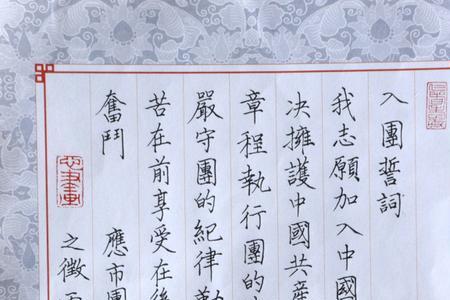 入團誓詞
我志願加入中國
决擁護中國共產
章程執行團的
嚴守團的紀律勤
苦在前享受在後
奮鬥
應市團
之徵